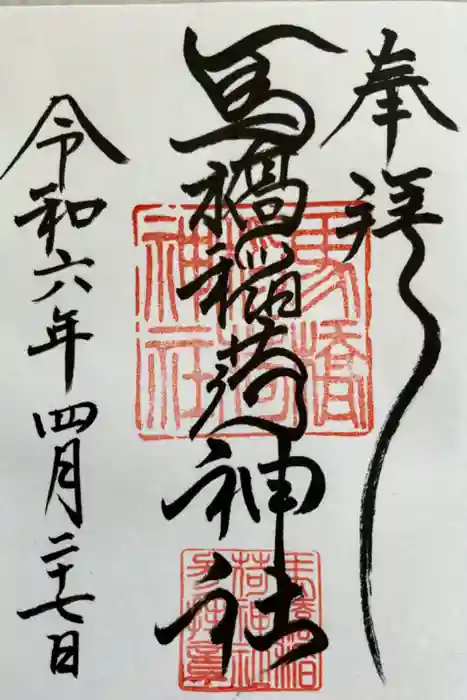 奉拝
馬橋稲荷神社
令和六年四月二十七日
馬橋稲荷神社